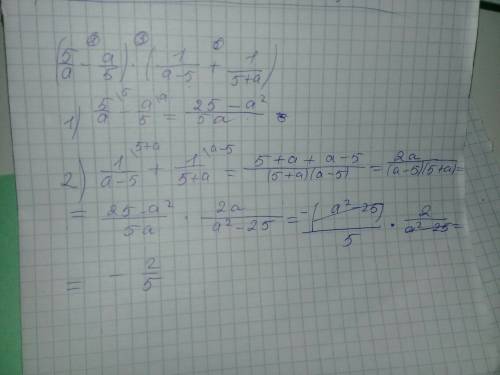 (5/a - a/5) · (1/(a-5) + 1/(5+a))
1) 5/a \5 - a/5 \a = (25-a²)/5a
2) 1/(a-5) \5+a + 1/(5+a) \a-5 = (5+a+a-5)/((5+a)(a-5)) = 2a/((a-5)(5+a)) =
= (25-a²)/5a · 2a/(a²-25) = -(a²-25)/5 · 2/(a²-25) =
= - 2/5